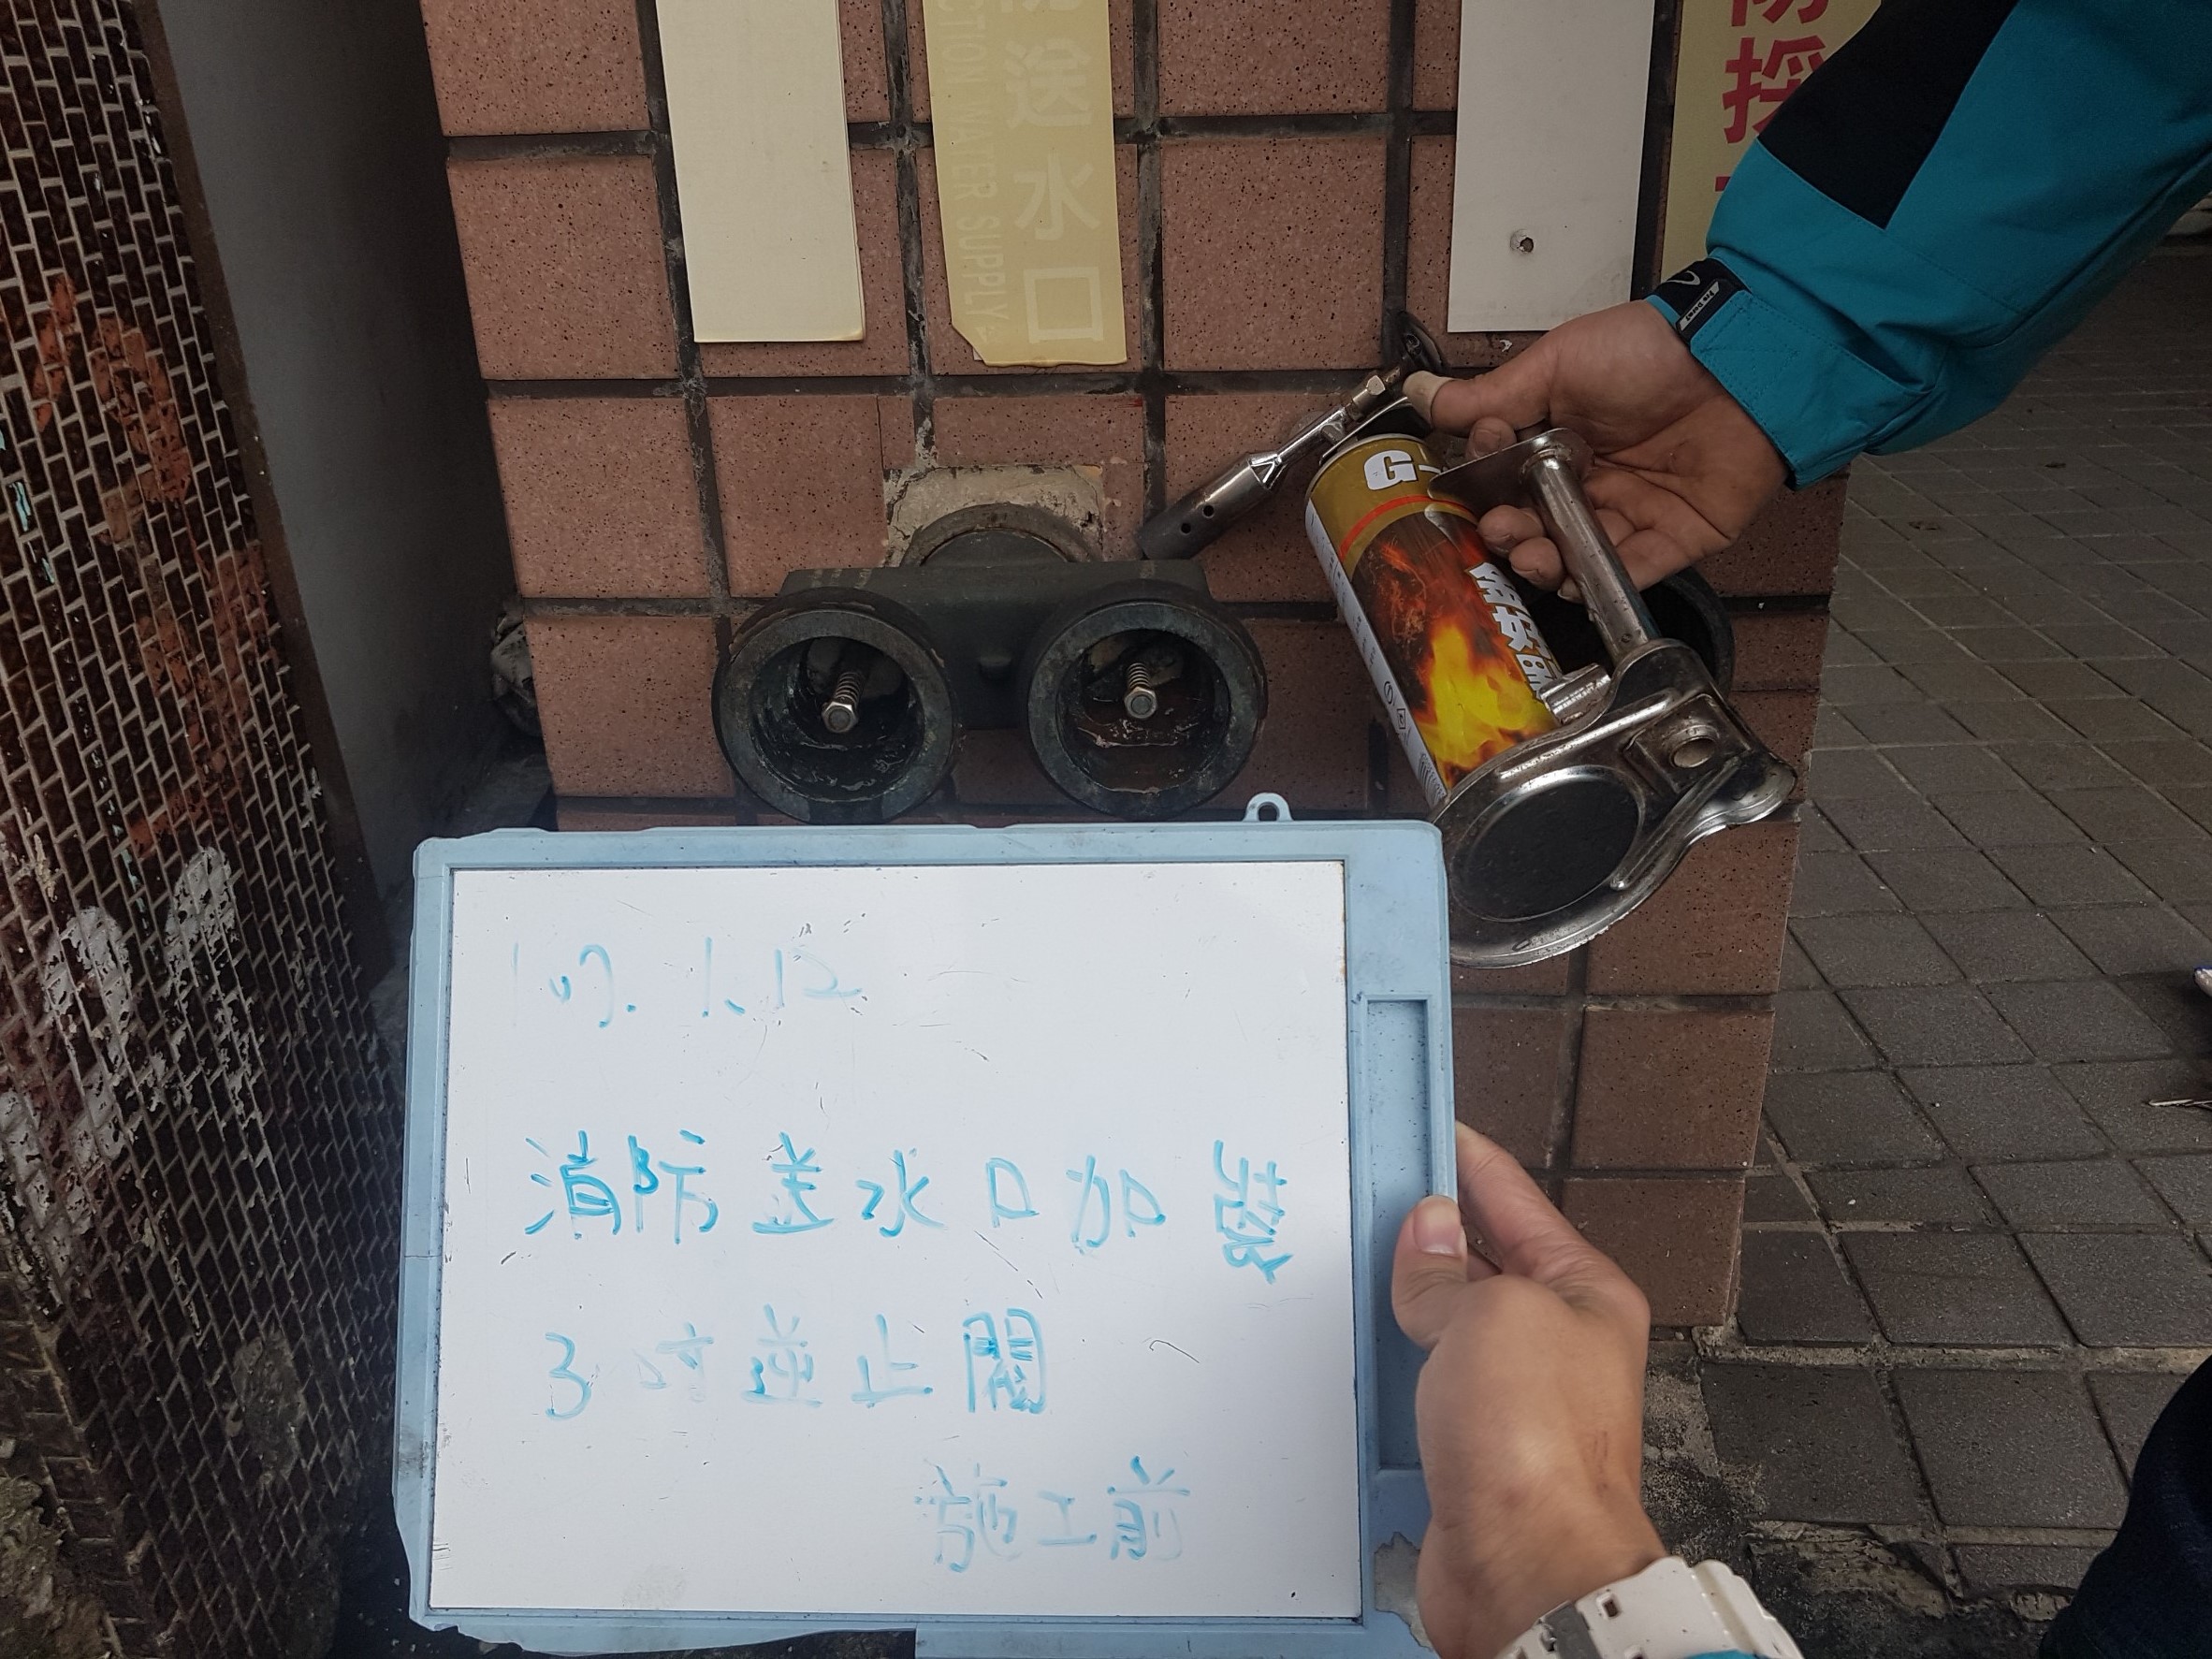 送水口
CTION WATER SUPPLY
防採
G-
107.1.12
消防送水口加裝
3吋逆止閥
施工前